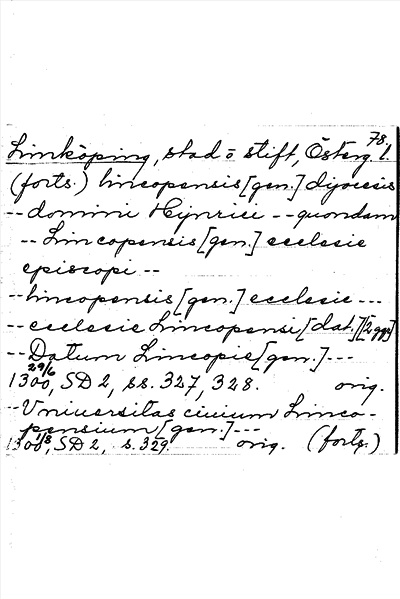 78.
Linköping, stad o stift, Österg. l.
(forts.) lincopensis [gen.] dyocesis
-- domini Hynrici -- quondam
-- Lincopensis [gen.] ecclesie
episcopi --
-- lincopensis [gen.] ecclesie ---
-- ecclesie Lincopensi [dat.] [2 ggr]
-- Datum Lincopie [gen.] ---
1300 29/6, SD 2, ss. 327, 328. orig.
-- Vniuersitas ciuium Linco-
pensium [gen.] ---
1300 1/8, SD 2, s. 329. orig. (forts.)